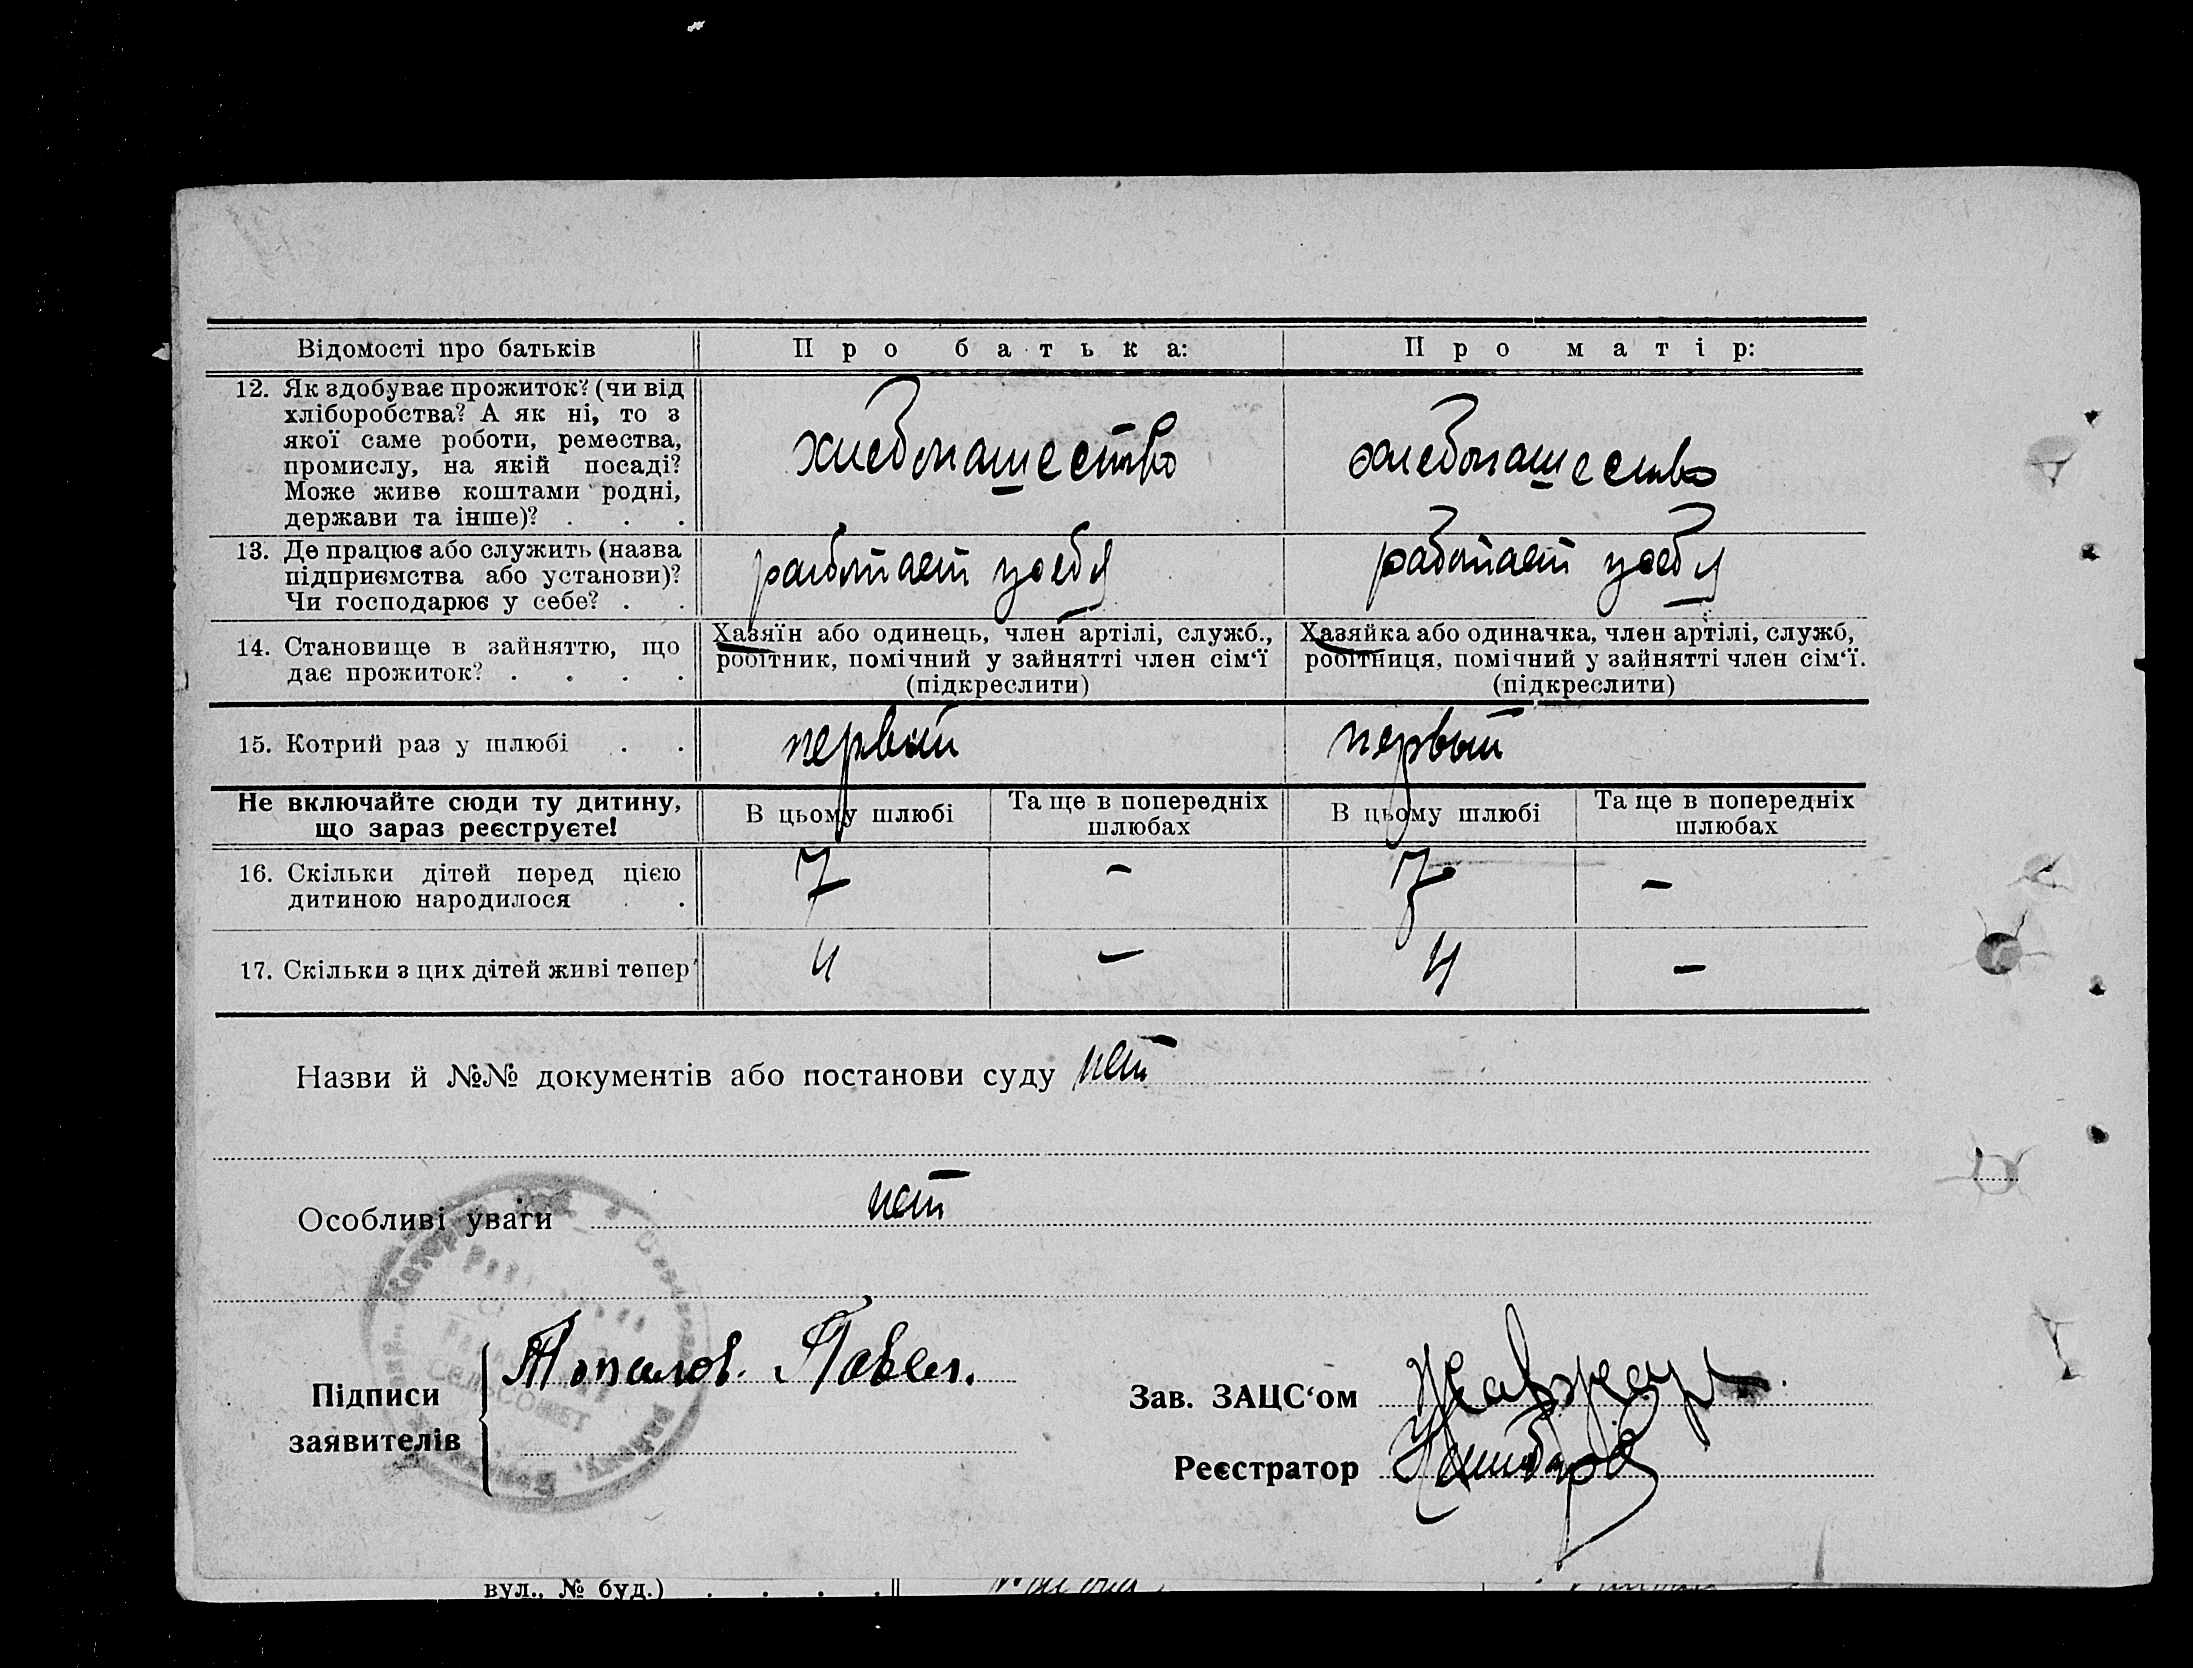 Відомості про батьків
Про батька:
Про матір:
12. Як здобуває прожиток? (чи від
хліборобства? А як ні, то з
якої саме роботи, ремества,
промислу, на якій посаді?
Може живе коштами родні,
держави та інше)? . . .
хлебопашество
хлебопашество
13. Де працює або служить (назва
підприємства або установи)?
Чи господарює у себе? . .
работает у себя
работает у себя
14. Становище в зайняттю, що
дає прожиток? . . . .
Хазяїн або одинець, член артілі, служб.,
робітник, помічний у зайнятті член сім‘ї
(підкреслити)
Хазяйка або одиначка, член артілі, служб,
робітниця, помічний у зайнятті член сім‘ї.
(підкреслити)
15. Котрий раз у шлюбі . .
первый
первый
Не включайте сюди ту дитину,
що зараз реєструєте!
В цьому шлюбі
Та ще в попередніх
шлюбах
В цьому шлюбі
Та ще в попередніх
шлюбах
16. Скільки дітей перед цією
дитиною народилося . .
7
-
7
-
17. Скільки з цих дітей живі тепер
4
-
4
-
Назви й №№ документів або постанови суду нет
Особливі уваги нет
СЕЛЬСОВЕТ
Підписи
заявителів
Топалов Павел.
Зав. ЗАЦС‘ом
Реєстратор
вул., № буд.) . . . .